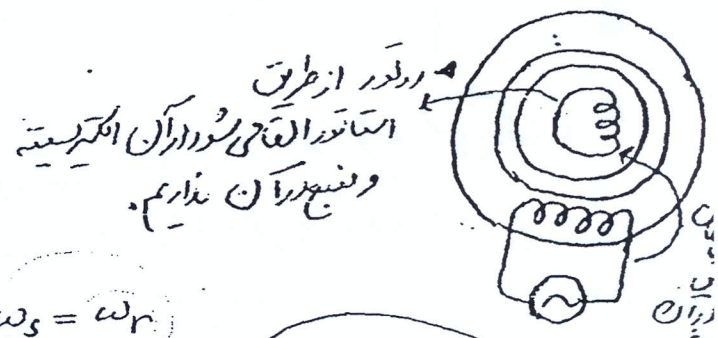 روتور از طریق
استاتور القا می شود در آن الکتریسیته
و منبع در آن نداریم.
ωs = ωr